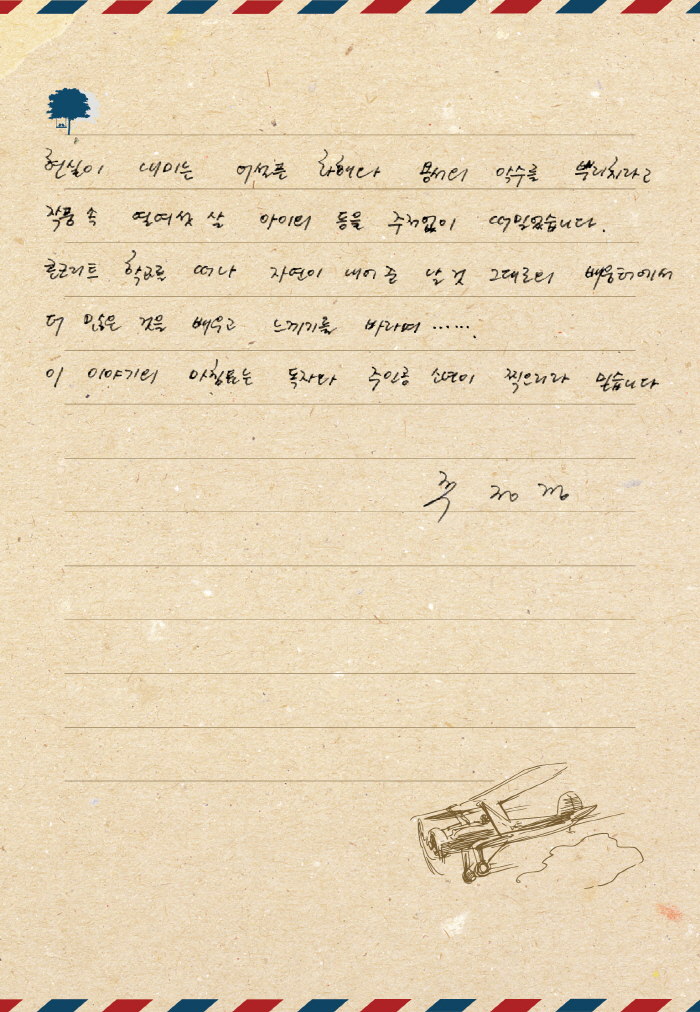 현실이 내미는 어설픈 화해나 용서의 악수를 뿌리치라고
작품 속 열여섯 살 아이의 등을 주저없이 떠밀었습니다.
콘크리트 학교를 떠나 자연이 내어준 날것 그대로의 배움터에서
더 많은 것을 배우고 느끼기를 바라며 ······
이 이야기의 마침표는 독자와 주인공 소년이 찍으리라 믿습니다